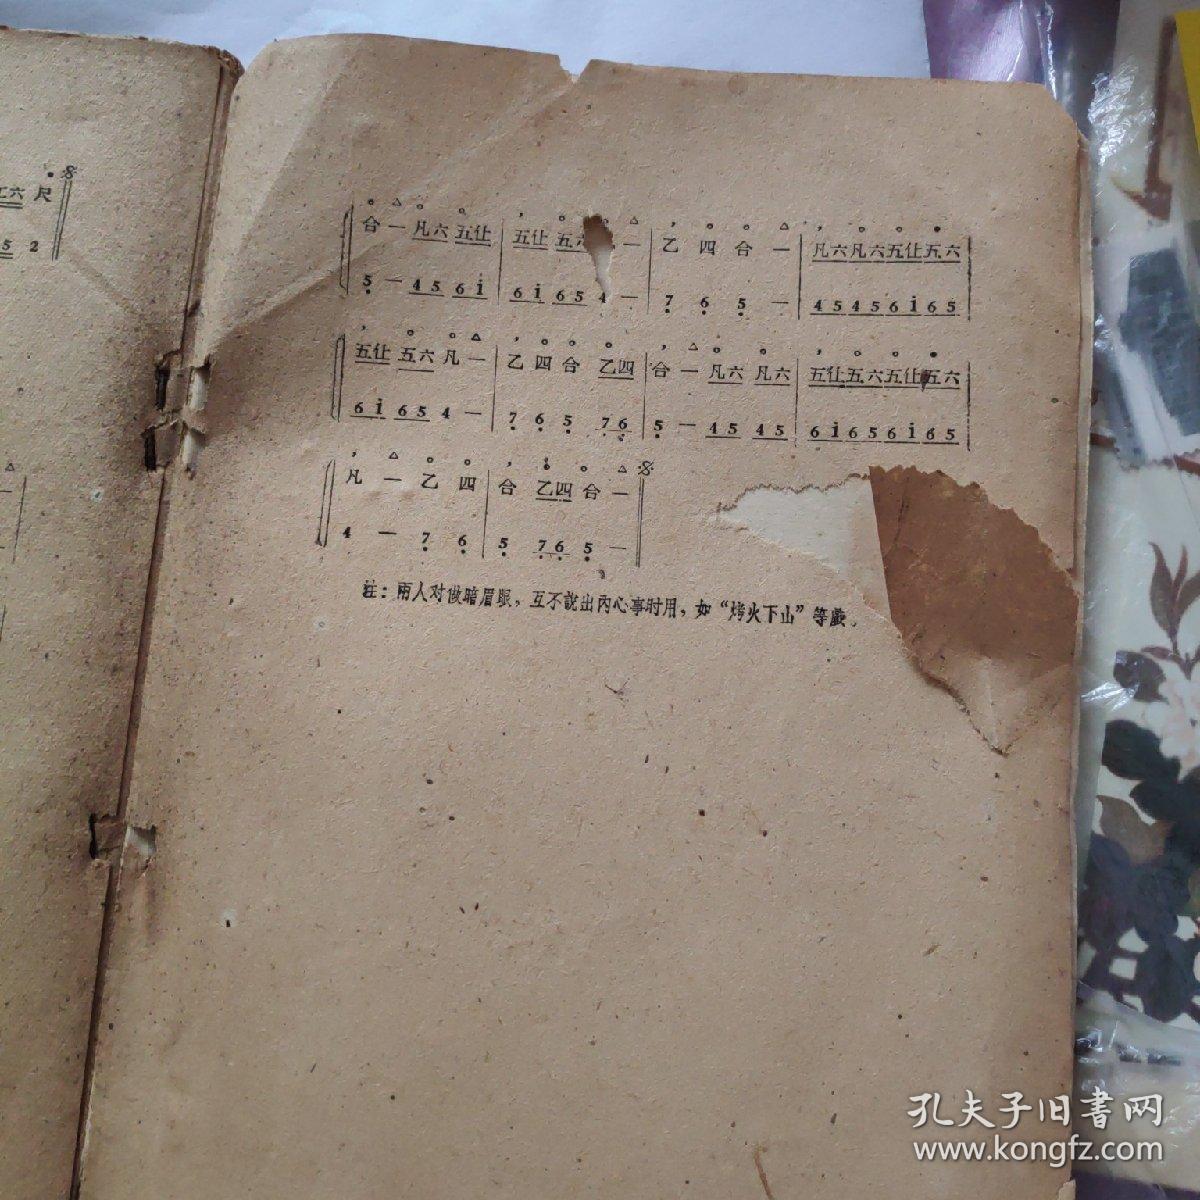 工六 尺
5 2
合 一 凡六 五仩 五仩 五六 一 乙 四 合 一 凡六凡六五仩五六
5 — 45 6i 6i 65 4 — 7 6 5 — 45456i65
五仩 五六 凡 一 乙 四 合 乙四 合 一 凡六 凡六 五仩五六五仩五六
6i 65 4 — 7 6 5 76 5 — 45 45 6i656i65
凡 一 乙 四 合 乙四 合 一
4 — 7 6 5 76 5 —
註：兩人对做暗眉眼，互不說出內心事时用，如“烤火下山”等戲。
孔夫子旧書网
www.kongfz.com